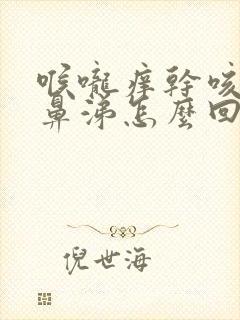 喉嚨痒幹咳
鼻涕怎麼回
倪世海